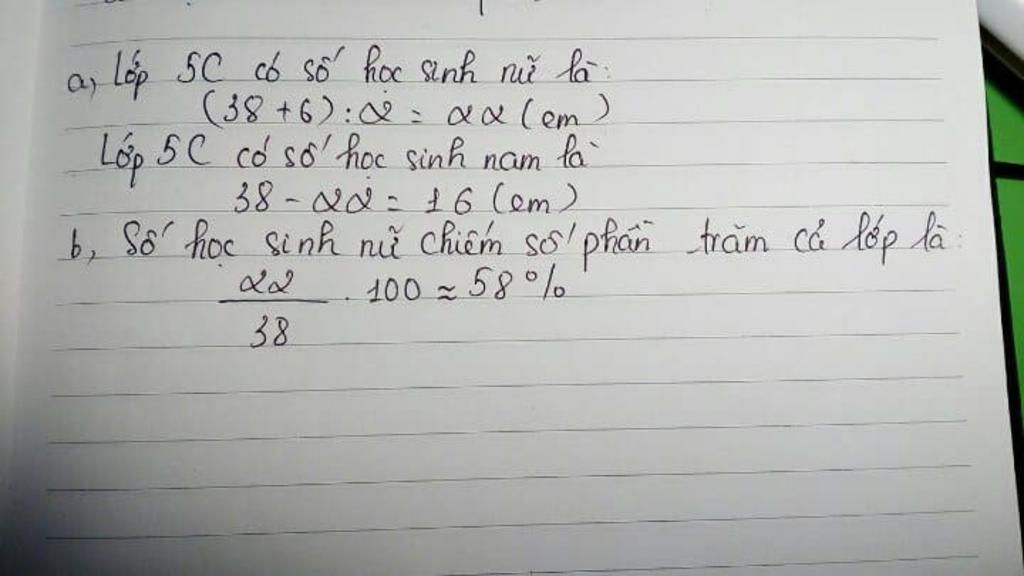 a, Lớp 5C có số học sinh nữ là:
(38+6):2 = 22 (em)
Lớp 5C có số học sinh nam là
38 - 22 = 16 (em)
b, Số học sinh nữ chiếm số phần trăm cả lớp là:
22/38 . 100 ≈ 58%